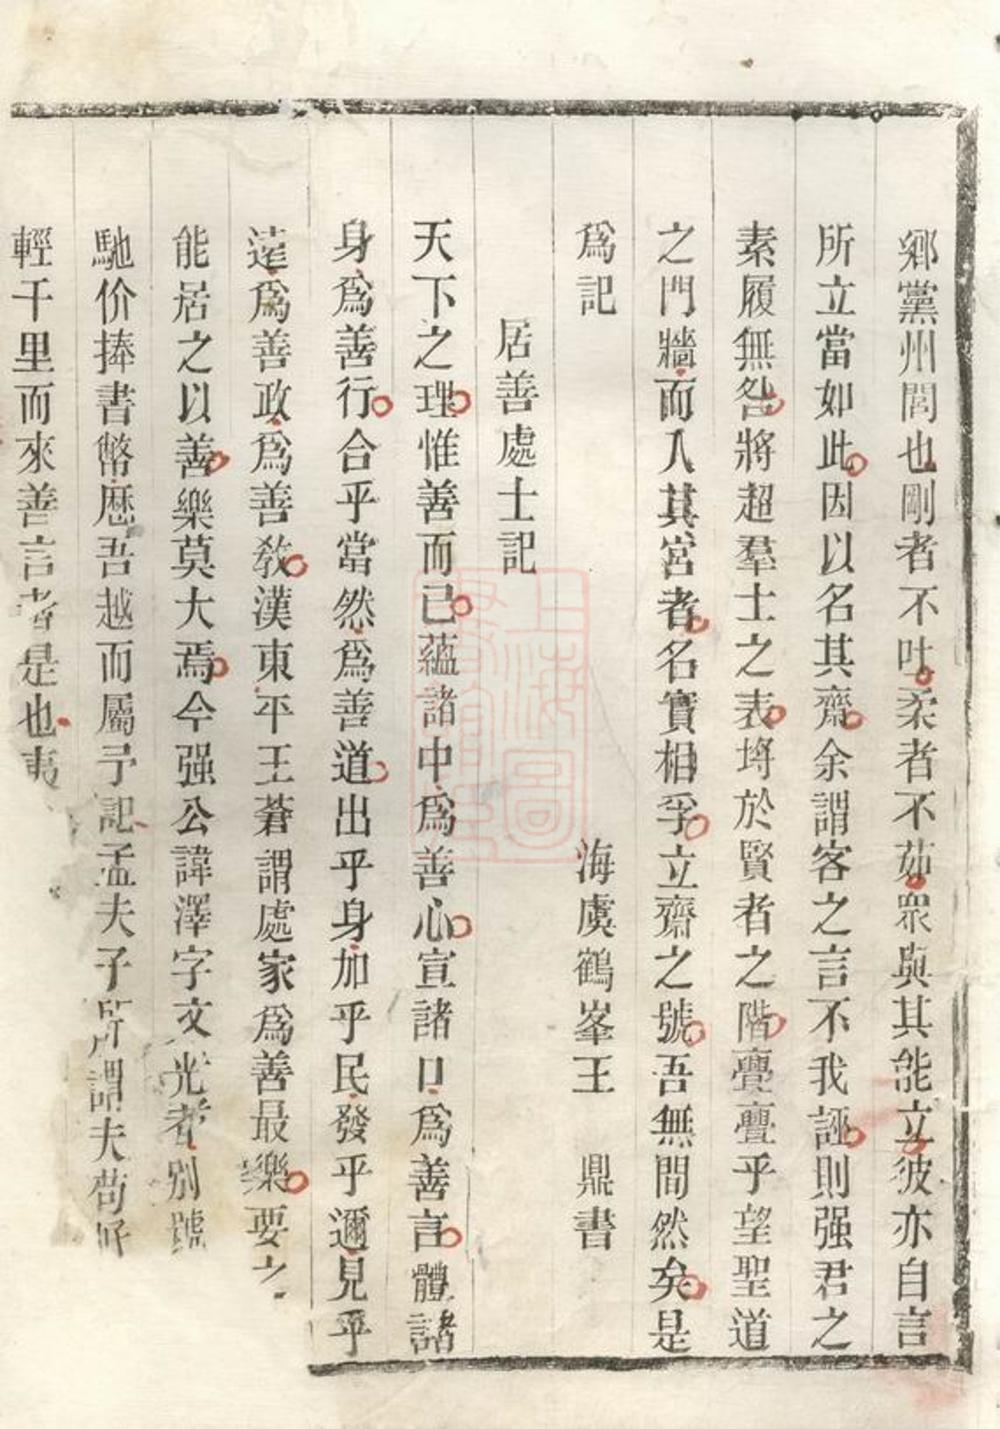 鄉黨州閭也剛者不吐柔者不茹衆與其能立彼亦自言
所立當如此因以名其齋余謂客之言不我誣則强君之
素履無咎將超羣士之表埓於賢者之階亹亹乎望聖道
之門牆而入其宮者名實相孚立齋之號吾無間然矣是
爲記　海虞鶴峯王　鼎書
居善處士記
天下之理惟善而已蘊諸中爲善心宣諸口爲善言體諸
身爲善行合乎當然爲善道出乎身加乎民發乎邇見乎
遠爲善政爲善敎漢東平王蒼謂處家爲善最樂要之
能居之以善樂莫大焉今强公諱澤字文光者別號
馳价捧書幣歷吾越而屬予記孟夫子所謂夫苟好
輕千里而來善言者是也夷
上海圖書館藏